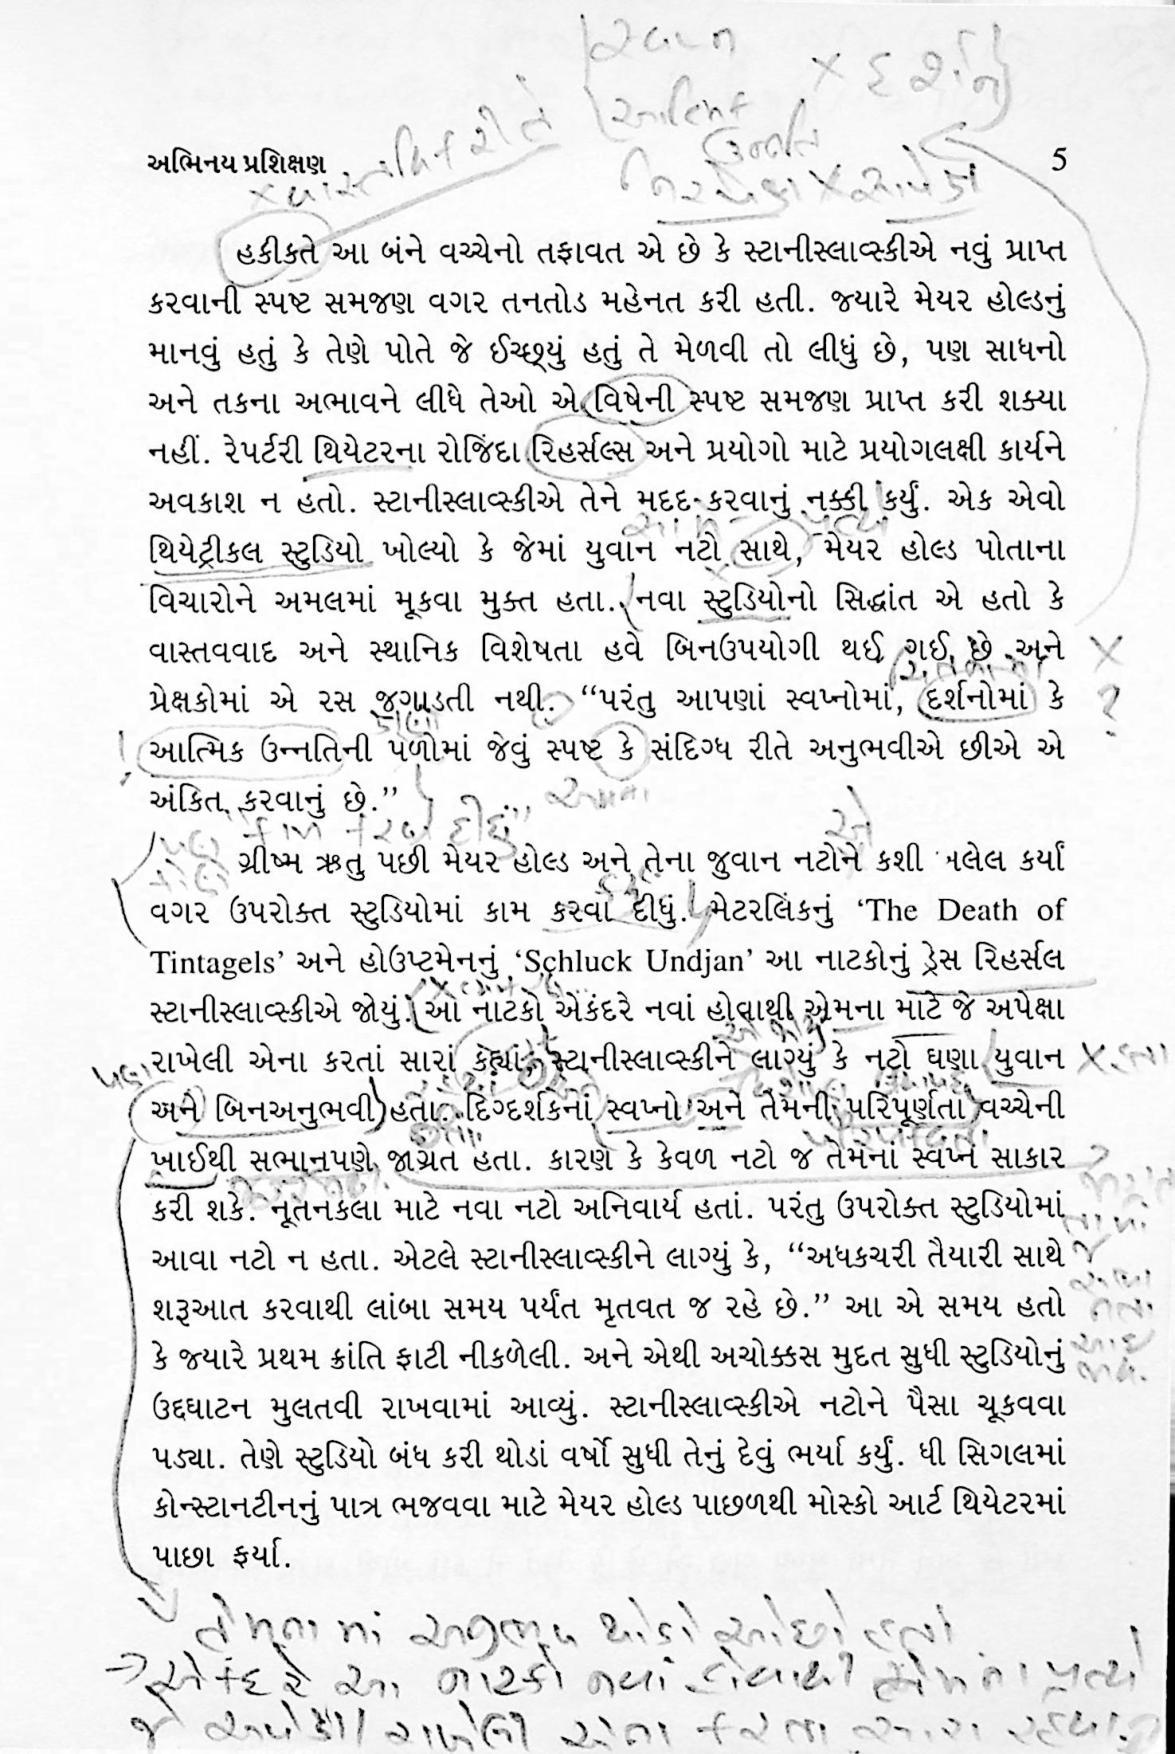 સ્વપ્ન
× દર્શન
આત્મિક
ઉન્નતિ
× વાસ્તવિક રીતે
અભિનય પ્રશિક્ષણ 5
હકીકતે આ બંને વચ્ચેનો તફાવત એ છે કે સ્ટાનીસ્લાવ્સ્કીએ નવું પ્રાપ્ત
કરવાની સ્પષ્ટ સમજણ વગર તનતોડ મહેનત કરી હતી. જયારે મેયર હોલ્ડનું
માનવું હતું કે તેણે પોતે જે ઈચ્છ્યું હતું તે મેળવી તો લીધું છે, પણ સાધનો
અને તકના અભાવને લીધે તેઓ એ વિષેની સ્પષ્ટ સમજણ પ્રાપ્ત કરી શક્યા
નહીં. રેપર્ટરી થિયેટરના રોજિંદા રિહર્સલ્સ અને પ્રયોગો માટે પ્રયોગલક્ષી કાર્યને
અવકાશ ન હતો. સ્ટાનીસ્લાવ્સ્કીએ તેને મદદ કરવાનું નક્કી કર્યું. એક એવો
થિયેટ્રીકલ સ્ટુડિયો ખોલ્યો કે જેમાં યુવાન નટો સાથે, મેયર હોલ્ડ પોતાના
વિચારોને અમલમાં મૂકવા મુક્ત હતા. નવા સ્ટુડિયોનો સિદ્ધાંત એ હતો કે
વાસ્તવવાદ અને સ્થાનિક વિશેષતા હવે બિનઉપયોગી થઈ ગઈ છે અને ×
પ્રેક્ષકોમાં એ રસ જગાડતી નથી. “પરંતુ આપણાં સ્વપ્નોમાં, દર્શનોમાં કે ?
! આત્મિક ઉન્નતિની પળોમાં જેવું સ્પષ્ટ કે સંદિગ્ધ રીતે અનુભવીએ છીએ એ
અંકિત કરવાનું છે.”
કામ કરવા દીધું
ગ્રીષ્મ ઋતુ પછી મેયર હોલ્ડ અને તેના જુવાન નટોને કશી ખલેલ કર્યા
વગર ઉપરોક્ત સ્ટુડિયોમાં કામ કરવા દીધું. મેટરલિંકનું ‘The Death of
Tintagels’ અને હોઉપ્ટમેનનું ‘Schluck Undjan’ આ નાટકોનું ડ્રેસ રિહર્સલ
સ્ટાનીસ્લાવ્સ્કીએ જોયું. આ નાટકો એકંદરે નવાં હોવાથી એમના માટે જે અપેક્ષા
રાખેલી એના કરતાં સારાં કહ્યાં. સ્ટાનીસ્લાવ્સ્કીને લાગ્યું કે નટો ઘણા યુવાન × હતા
અને બિનઅનુભવી હતા. દિગ્દર્શકનાં સ્વપ્નો અને તેમની પરિપૂર્ણતા વચ્ચેની
ખાઈથી સભાનપણે જાગ્રત હતા. કારણ કે કેવળ નટો જ તેમનાં સ્વપ્ન સાકાર
કરી શકે. નૂતનકલા માટે નવા નટો અનિવાર્ય હતાં. પરંતુ ઉપરોક્ત સ્ટુડિયોમાં
આવા નટો ન હતા. એટલે સ્ટાનીસ્લાવ્સ્કીને લાગ્યું કે, “અધકચરી તૈયારી સાથે
શરૂઆત કરવાથી લાંબા સમય પર્યંત મૃતવત જ રહે છે.” આ એ સમય હતો
કે જયારે પ્રથમ ક્રાંતિ ફાટી નીકળેલી. અને એથી અચોક્કસ મુદત સુધી સ્ટુડિયોનું
ઉદ્દઘાટન મુલતવી રાખવામાં આવ્યું. સ્ટાનીસ્લાવ્સ્કીએ નટોને પૈસા ચૂકવવા
પડ્યા. તેણે સ્ટુડિયો બંધ કરી થોડાં વર્ષો સુધી તેનું દેવું ભર્યા કર્યું. ધી સિગલમાં
કોન્સ્ટાનટીનનું પાત્ર ભજવવા માટે મેયર હોલ્ડ પાછળથી મોસ્કો આર્ટ થિયેટરમાં
પાછા ફર્યા.
તેમનામાં અનુભવ થોડો ઓછો હતો
→ એકંદરે આ નાટકો નવાં હોવાથી એમના પ્રત્યે
જે અપેક્ષા રાખેલી એના કરતા સારા રહ્યા.